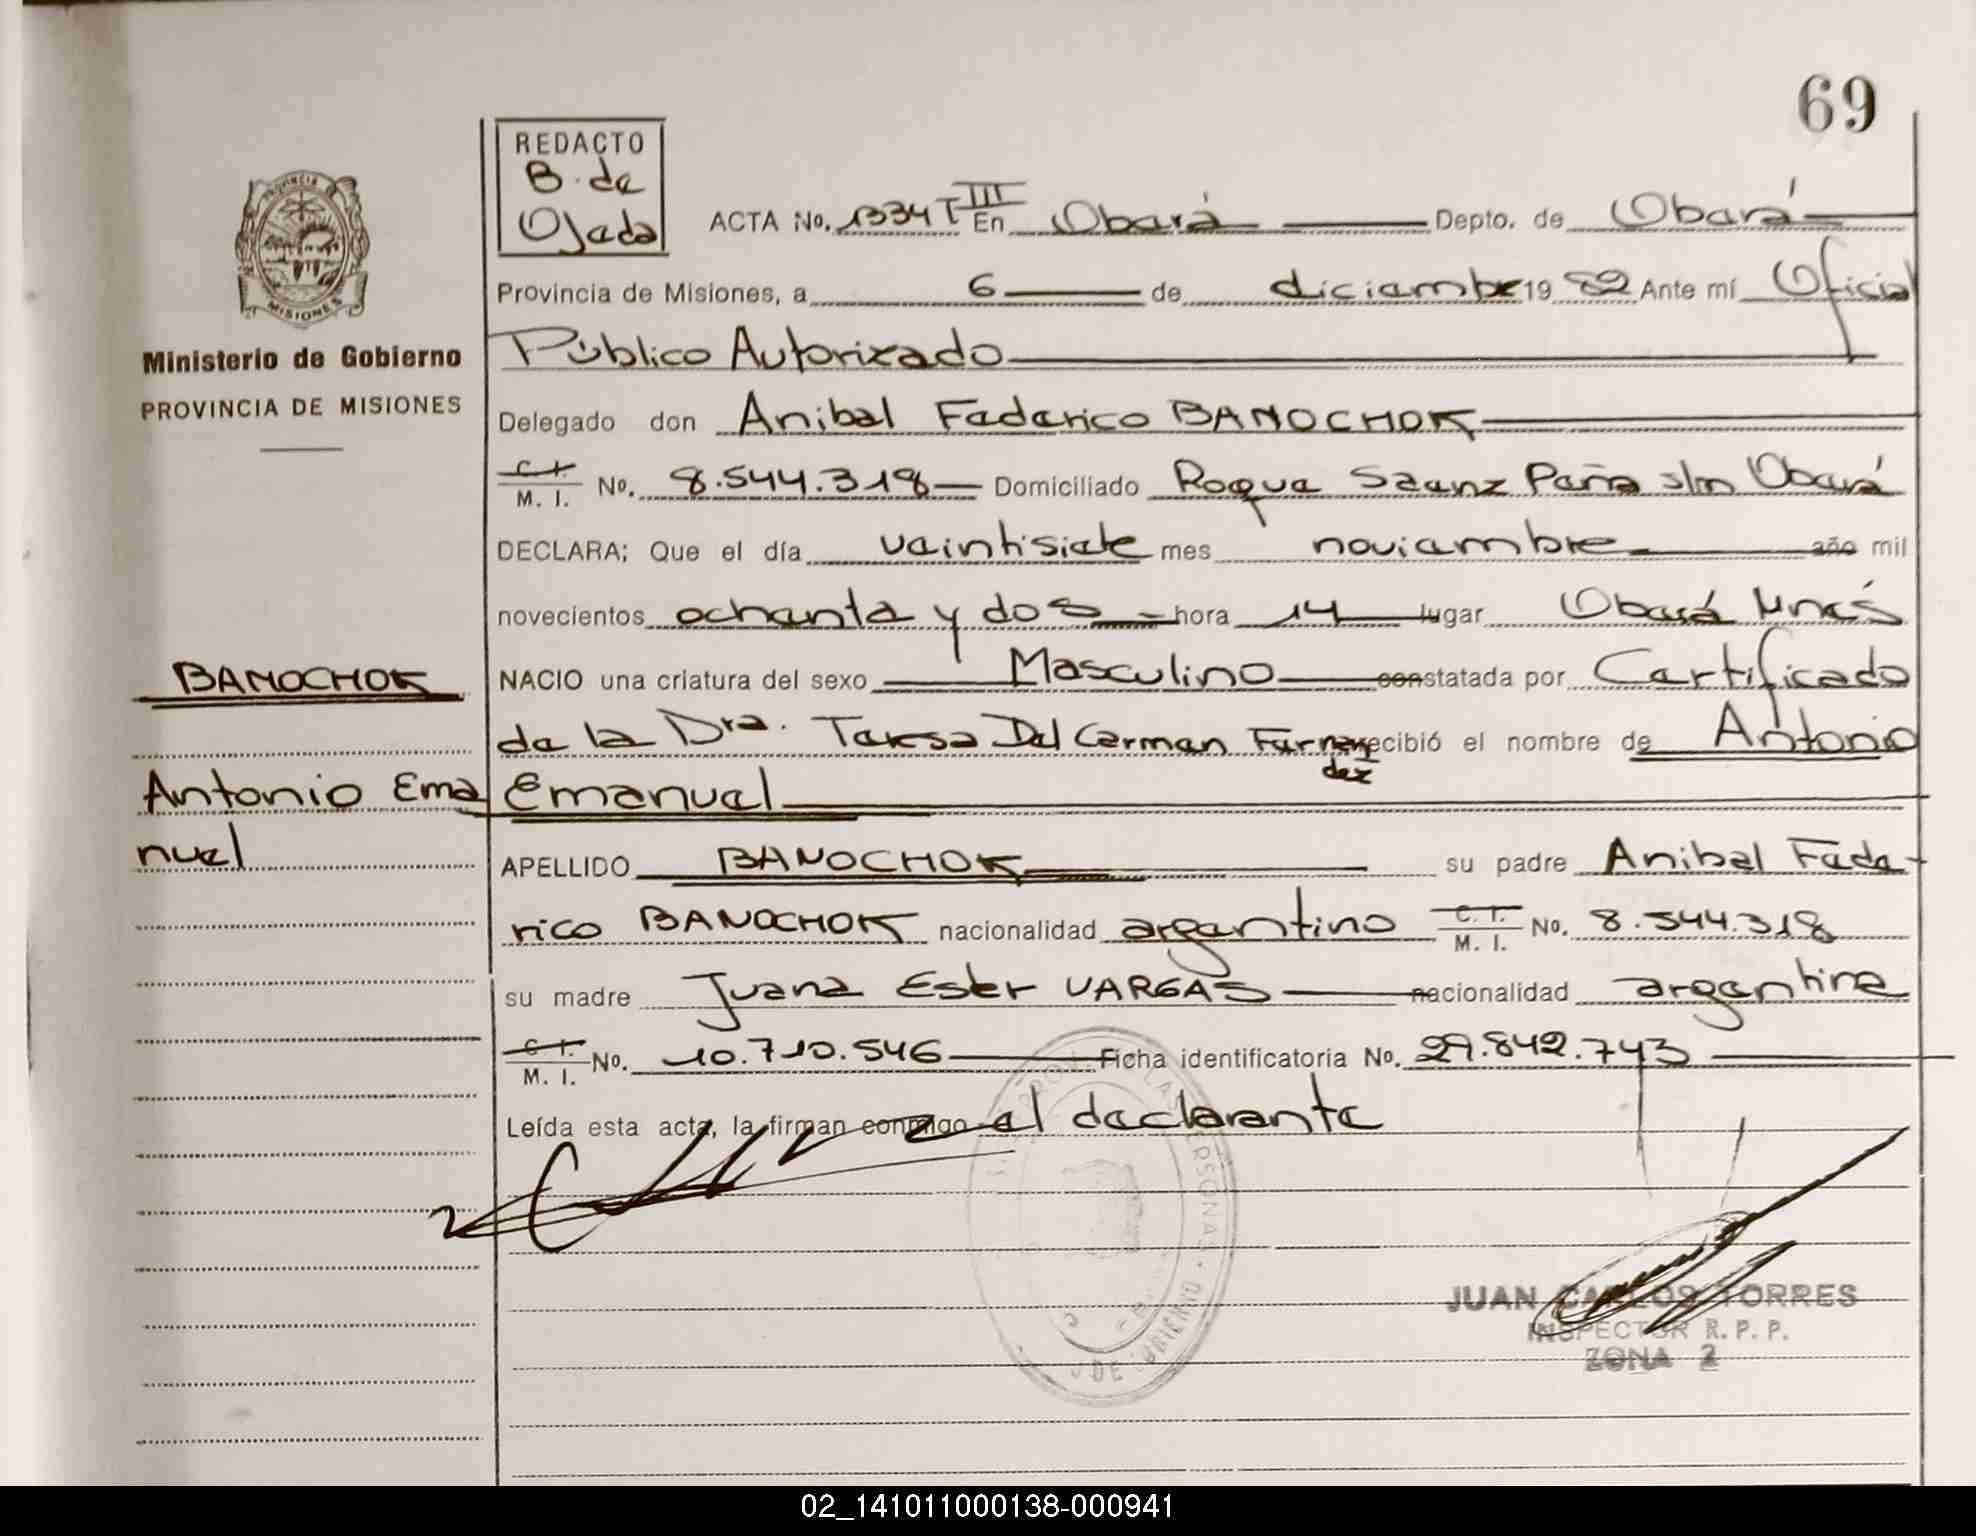 69
REDACTO
B. de
Ojeda
PROVINCIA DE
MISIONES
ACTA No. 1334 T III En Oberá Depto. de Oberá
Provincia de Misiones, a 6 de diciembre 19 82 Ante mí Oficial
Ministerio de Gobierno
Público Autorizado
PROVINCIA DE MISIONES
Delegado don Anibal Federico BANOCHOK
C. I.
M. I. No. 8.544.318 Domiciliado Roque Saenz Peña s/n Oberá
DECLARA; Que el día veintisiete mes noviembre año mil
novecientos ochenta y dos hora 14 lugar Oberá Mnes
BANOCHOK
NACIO una criatura del sexo Masculino constatada por Certificado
de la Dra. Teresa Del Carmen Fernan recibió el nombre de Antonio
dez
Antonio Ema
Emanuel
nuel
APELLIDO BANOCHOK su padre Anibal Fede
rico BANOCHOK nacionalidad argentino C. I.
M. I. No. 8.544.318
su madre Juana Ester VARGAS nacionalidad argentina
C. I.
M. I. No. 10.710.546 Ficha identificatoria No. 29.842.743
Leída esta acta, la firman conmigo el declarante
JUAN CARLOS TORRES
INSPECTOR R. P. P.
ZONA 2
02_141011000138-000941